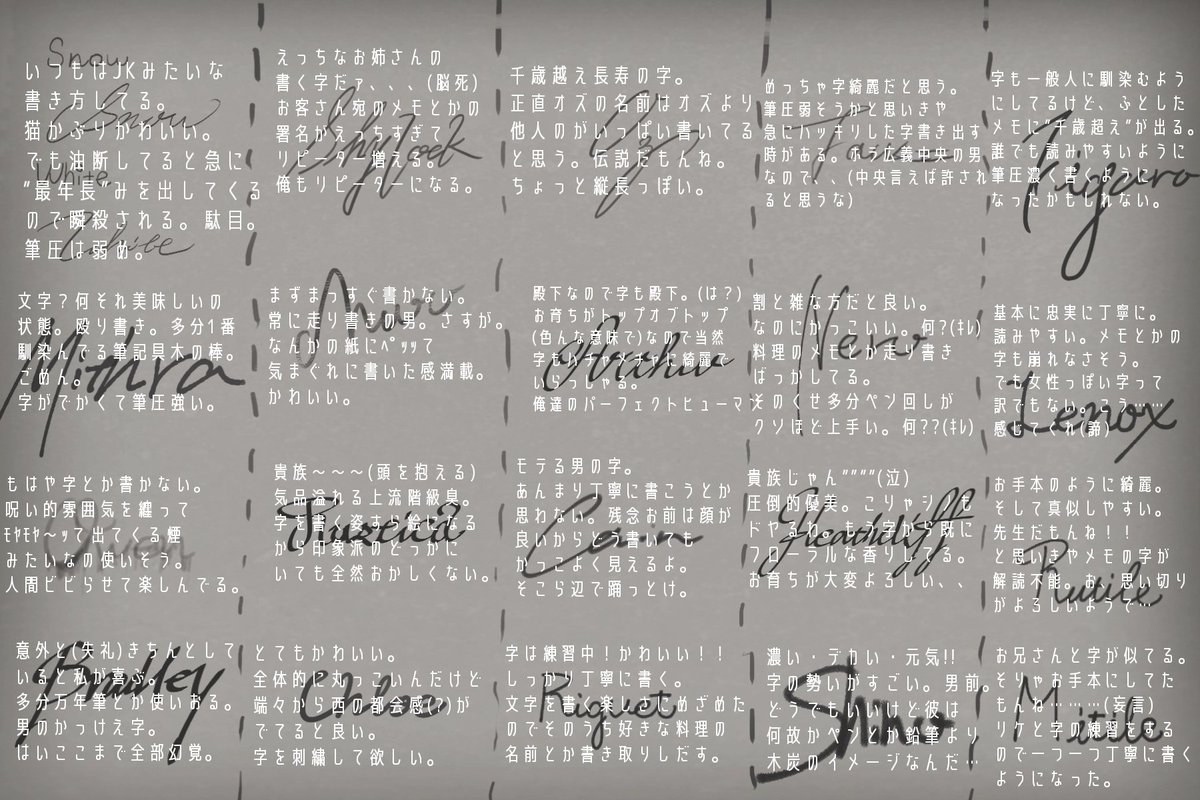 Snow
いつもはJKみたいな
書き方してる。
猫かぶりかわいい。
でも油断してると急に
"最年長"みを出してくる
ので瞬殺される。駄目。
筆圧は弱め。
Snow
White
White
えっちなお姉さんの
書く字だァ、、、(脳死)
お客さん宛のメモとかの
署名がえっちすぎて
リピーター増える。
俺もリピーターになる。
Shylock
千歳越え長寿の字。
正直オズの名前はオズより
他人のがいっぱい書いてる
と思う。伝説だもんね。
ちょっと縦長っぽい。
Oz
めっちゃ字綺麗だと思う。
筆圧弱そうかと思いきや
急にハッキリした字書き出す
時がある。ホラ広義中央の男
なので、、(中央言えば許され
ると思うな)
Faust
字も一般人に馴染むよう
にしてるけど、ふとした
メモに"千歳超え"が出る。
誰でも読みやすいように
筆圧濃く書くように
なったかもしれない。
Figaro
文字?何それ美味しいの
状態。殴り書き。多分1番
馴染んでる筆記具木の棒。
ごめん。
字がでかくて筆圧強い。
Mithra
まずまっすぐ書かない。
常に走り書きの男。さすが。
なんかの紙にﾍﾟｯｯて
気まぐれに書いた感満載。
かわいい。
Murr
殿下なので字も殿下。(は?)
お育ちがトップオブトップ
(色んな意味で)なので当然
字もハチャメチャに綺麗で
いらっしゃる。
俺達のパーフェクトヒューマン
Arthur
割と雑な方だと良い。
なのにかっこいい。何?(ｷﾚ)
料理のメモとか走り書き
ばっかしてる。
そのくせ多分ペン回しが
クソほど上手い。何??(ｷﾚ)
Nero
基本に忠実に丁寧に。
読みやすい。メモとかの
字も崩れなさそう。
でも女性っぽい字って
訳でもない。こう……
感じてくれ(諦)
Lenox
もはや字とか書かない。
呪い的雰囲気を纏って
ﾓﾔﾓﾔ〜ｯて出てくる煙
みたいなの使いそう。
人間ビビらせて楽しんでる。
Owen
貴族〜〜〜(頭を抱える)
気品溢れる上流階級臭。
字を書く姿すら絵になる
から印象派のどっかに
いても全然おかしくない。
Rustica
モテる男の字。
あんまり丁寧に書こうとか
思わない。残念お前は顔が
良いからどう書いても
かっこよく見えるよ。
そこら辺で踊っとけ。
Cain
貴族じゃん""""(泣)
圧倒的優美。こりゃシノも
ドヤるわ。もう字から既に
フローラルな香りしてる。
お育ちが大変よろしい、、
Heathcliff
お手本のように綺麗。
そして真似しやすい。
先生だもんね!!
と思いきやメモの字が
解読不能。お、思い切り
がよろしいようで…
Rutile
意外と(失礼)きちんとして
いると私が喜ぶ。
多分万年筆とか使いおる。
男のかっけえ字。
はいここまで全部幻覚。
Bradley
とてもかわいい。
全体的に丸っこいんだけど
端々から西の都会感(?)が
でてると良い。
字を刺繍して欲しい。
Chloe
字は練習中!かわいい!!
しっかり丁寧に書く。
文字を書く楽しさにめざめた
のでそのうち好きな料理の
名前とか書き取りしだす。
Riquet
濃い・デカい・元気!!
字の勢いがすごい。男前。
どうでもいいけど彼は
何故かペンとか鉛筆より
木炭のイメージなんだ…
Shino
お兄さんと字が似てる。
そりゃお手本にしてた
もんね………(妄言)
リケと字の練習をする
ので一つ一つ丁寧に書く
ようになった。
Mitile